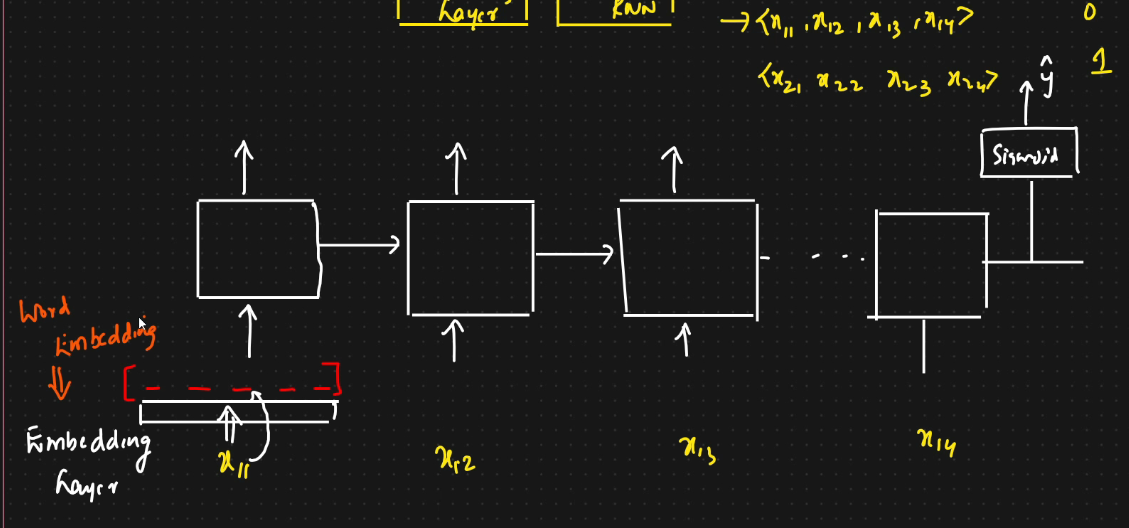 Layer RNN
→ <x11, x12, x13, x14> 0
<x21 x22 x23 x24> 1
ŷ
Sigmoid
Word
Embedding
Embedding
Layer
x11 x12 x13 x14